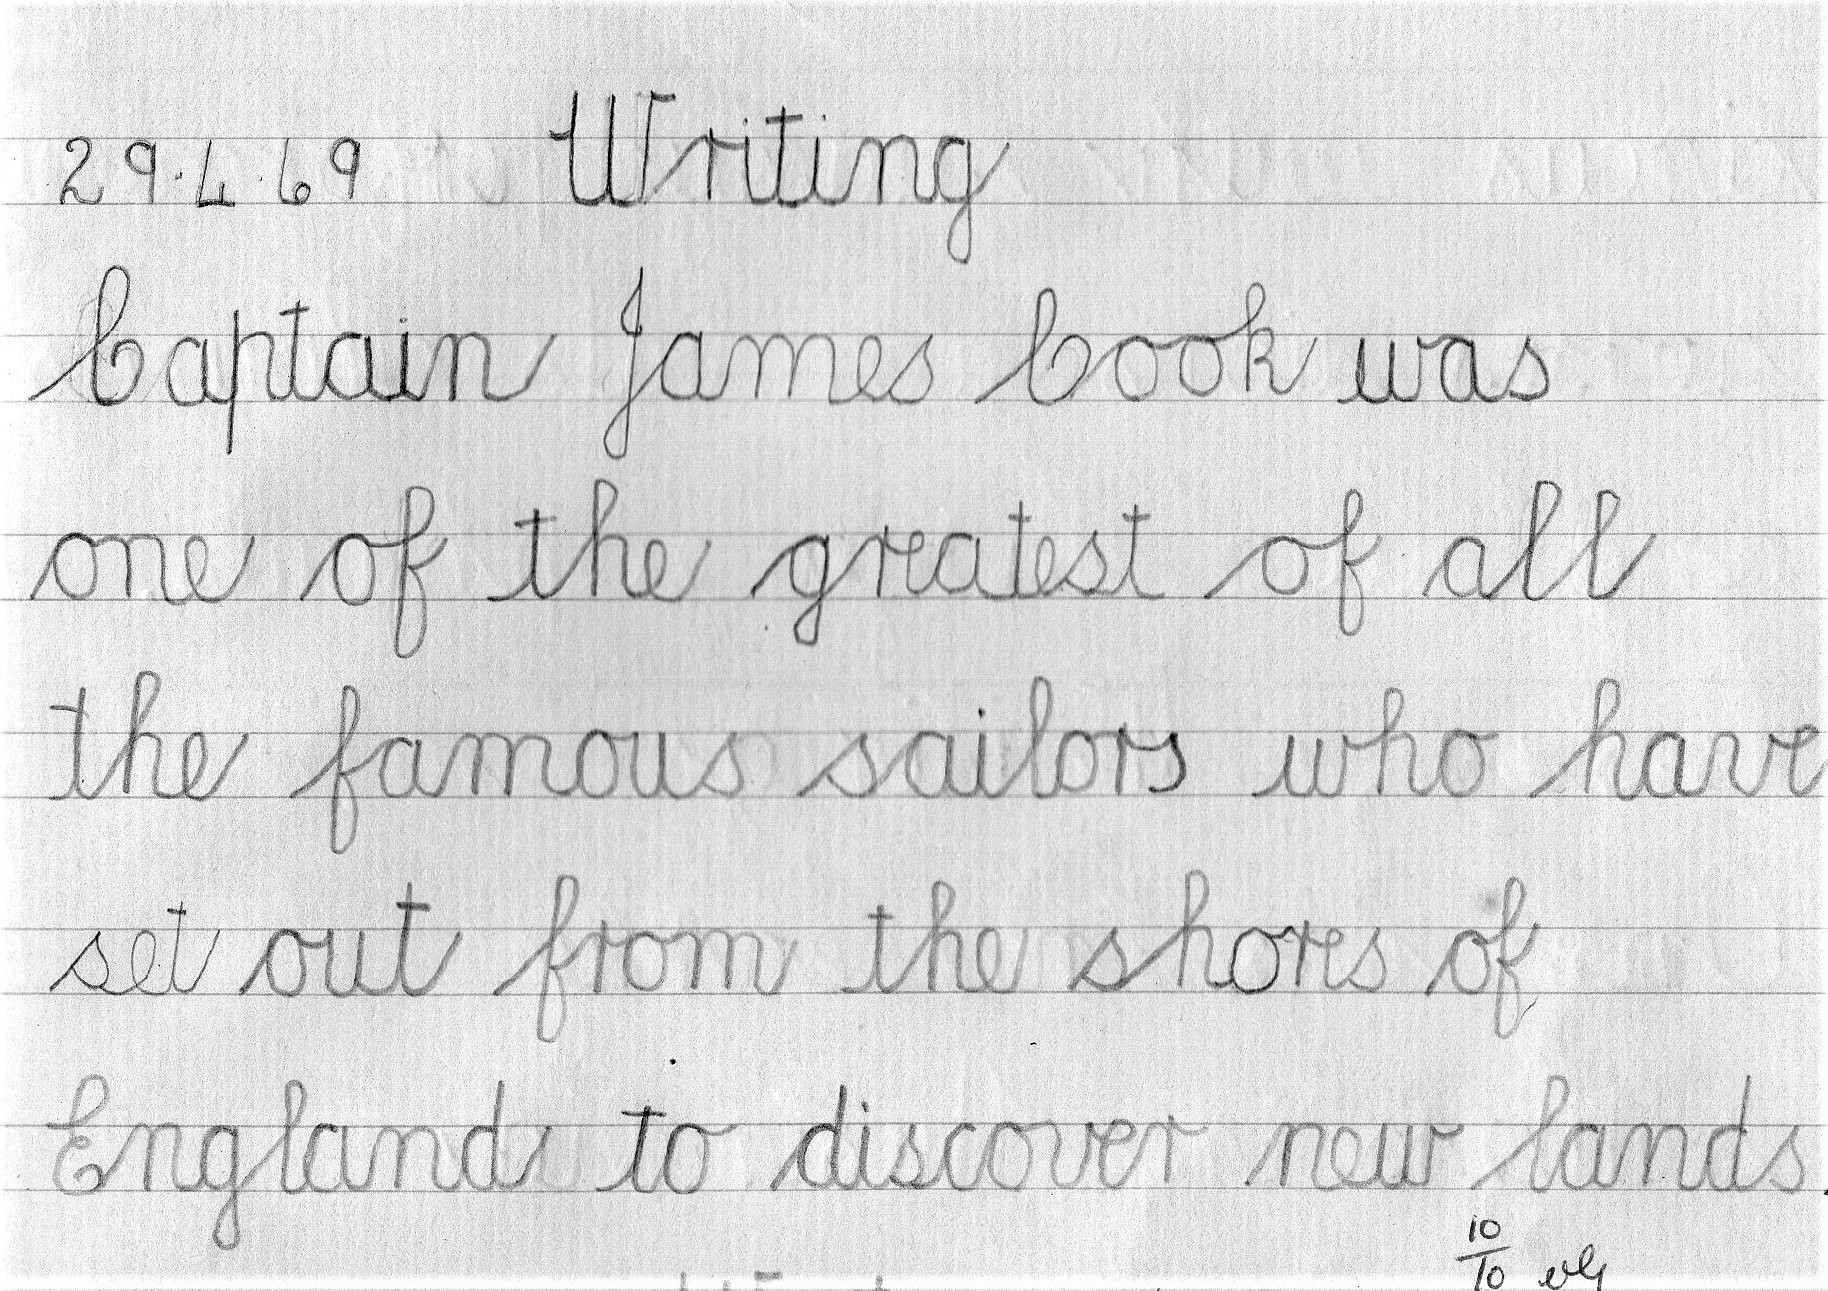 29.4.69 Writing
Captain James Cook was
one of the greatest of all
the famous sailors who have
set out from the shores of
England to discover new lands.
10/10 vG